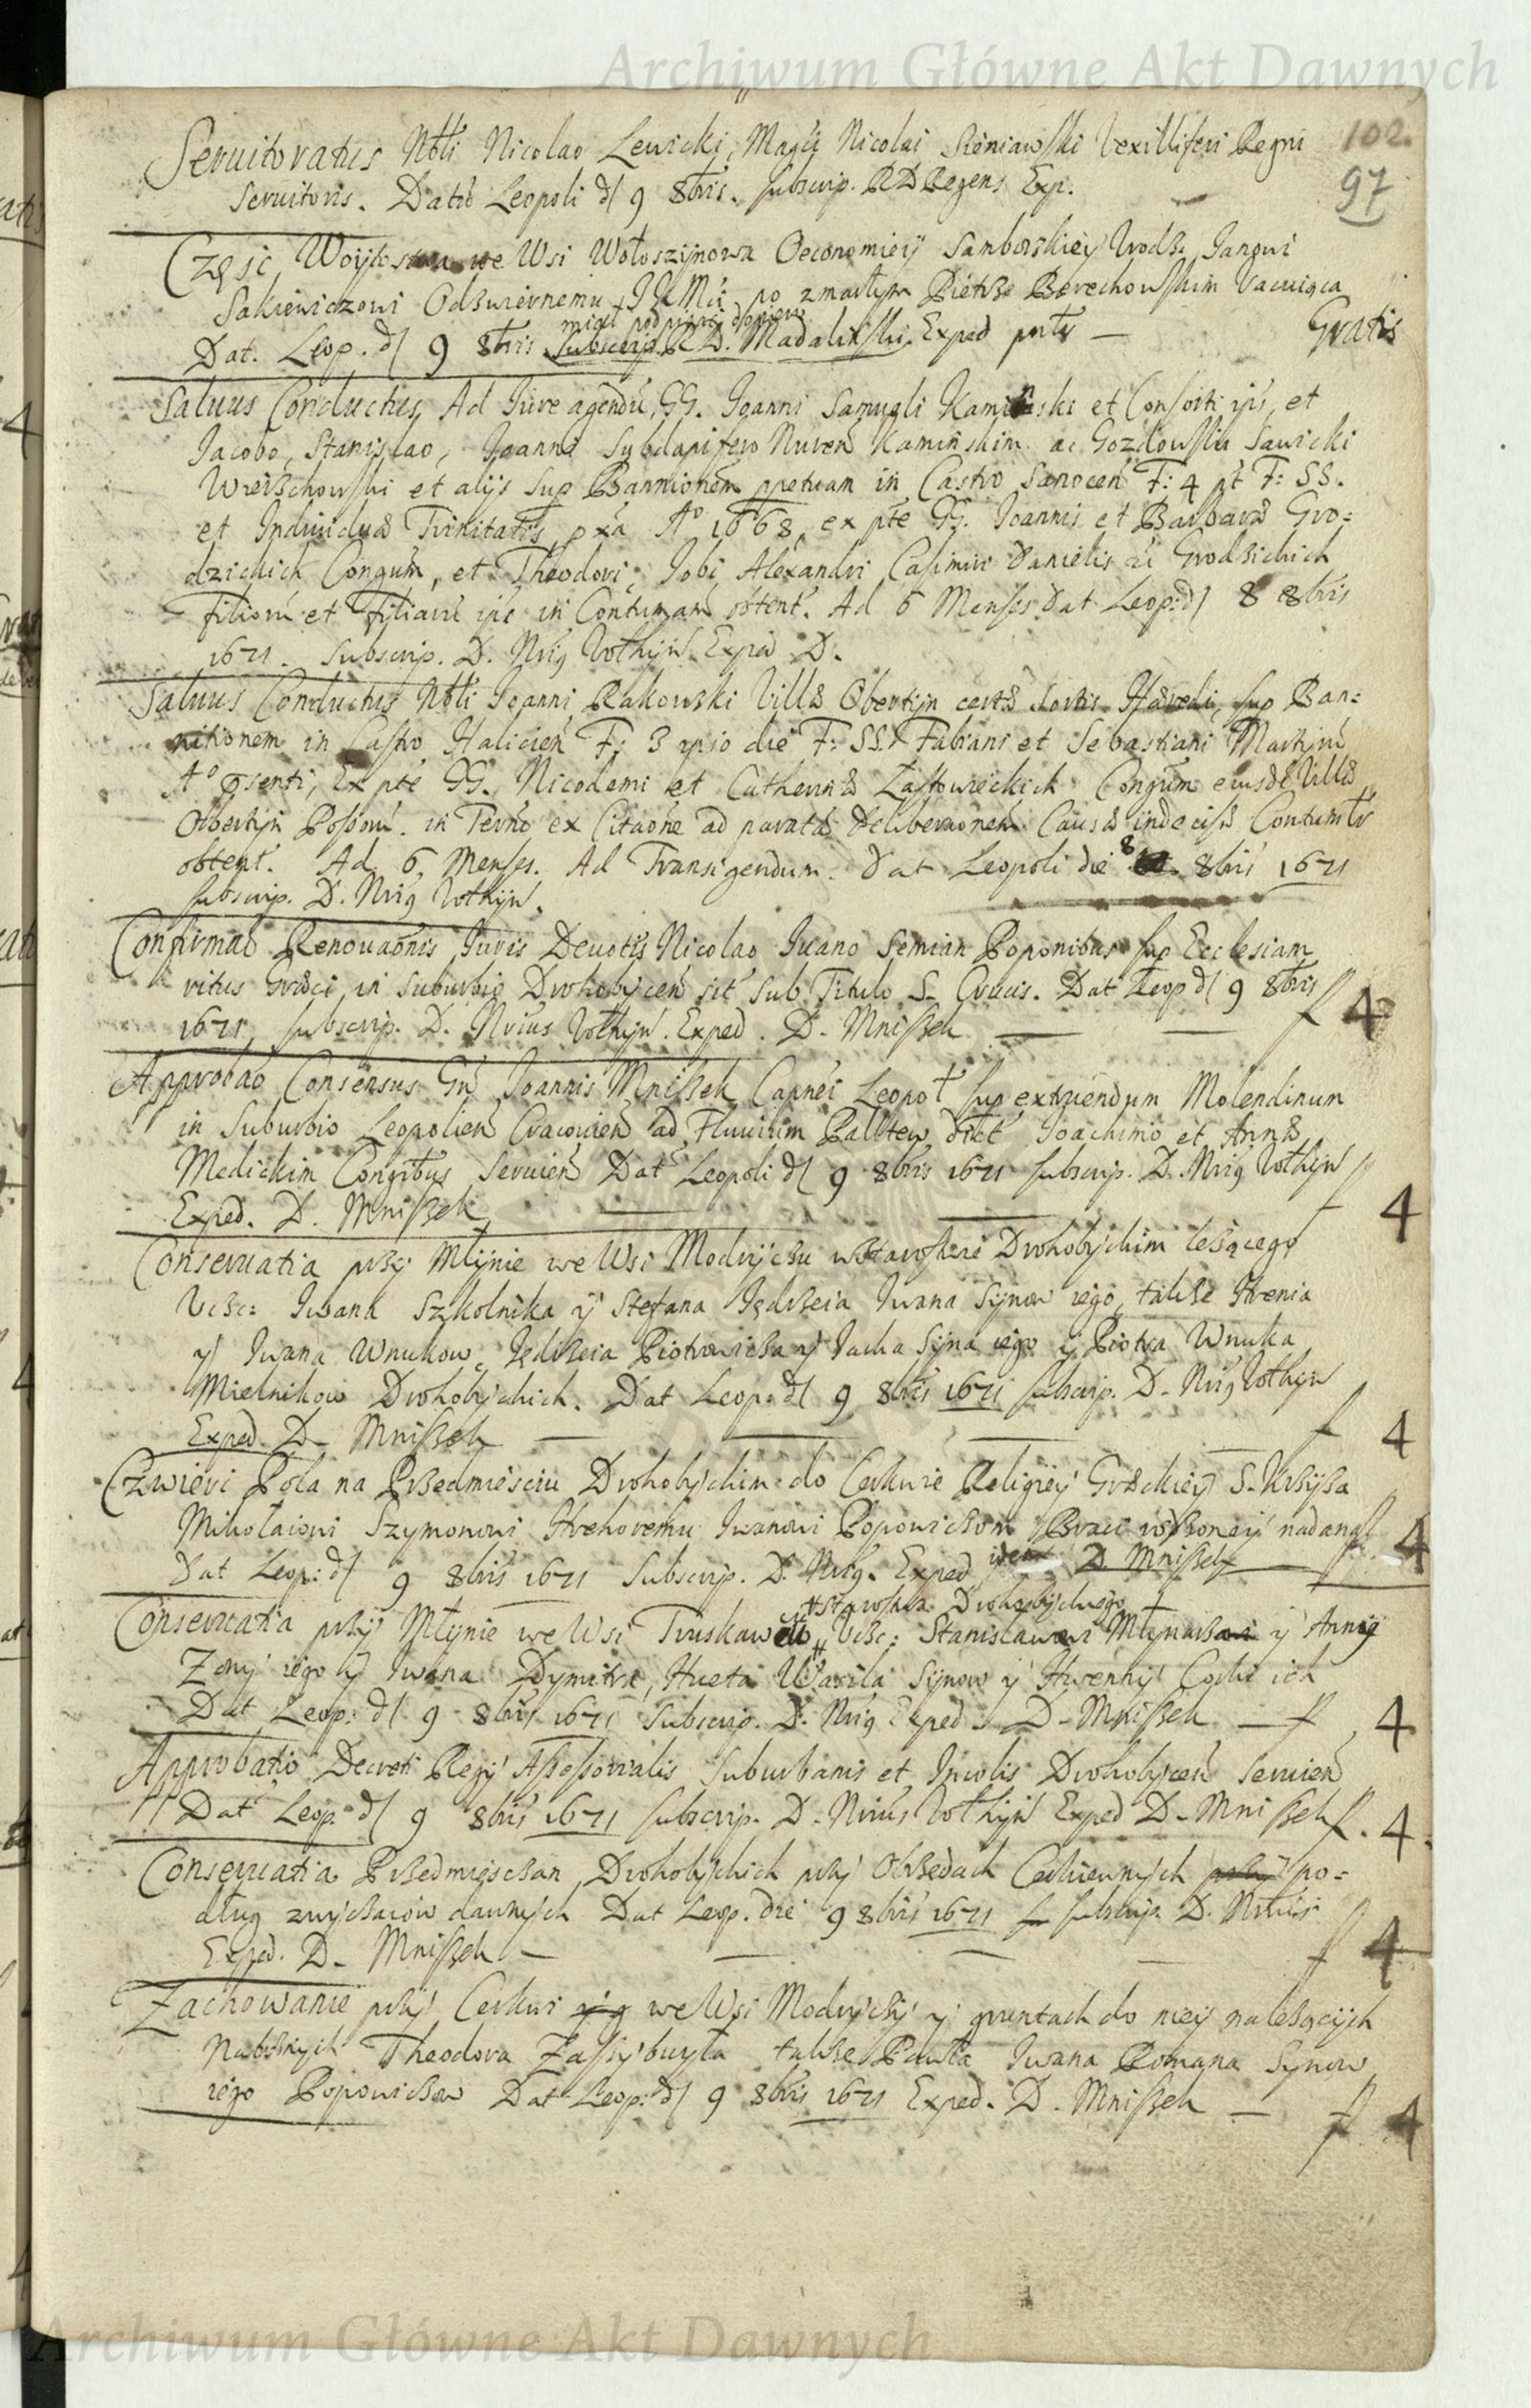 Archiwum Główne Akt Dawnych
102.
97
Servitoratus Nbli Nicolao Lewicki, Magci Nicolai Sieniawski Vexilliferi Regni
Servitoris. Dató Leopoli d/ 9 8bris. subscrip. RD Regens Exp.
Częsc Woytostwa we Wsi Wołoszynowa Oeconomiey Samborskiey Urodz. Janowi
Sakiewiczowi Odzwiernemu JKMci po zmarłym Pietrze Berechowskim vacuiąca
miał podpisać
Dat. Leop. d/ 9 8bris Subscrip. R D. Madalinski. Exped pnts — Gratis
Saluus Conductus, Ad Iure agendu, GG. Joanni Samueli Kaminski et Consorti ips, et
Jacobo, Stanislao, Joanni Subdapifero Nuren Kaminskim ac Gozdowski Sawicki
Wierzchowski et alijs sup Bannionem ppetuam in Castro Sanocen F: 4 pt F: SS.
et Individuæ Trinitatis, pxa Aº 1668, ex pte GG. Joannis et Barbaræ Gro=
dzickich Congum, et Theodori, Jobi Alexandri Casimiri Danielis ac Grodzickich
filioru et filiaru ips in Contumam obtent. Ad 6 Menses Dat Leop: d/ 8 8bris
1671. Subscrip. D. Nrig Vothyn. Exped D.
Saluus Conductus Nbli Joanni Rakowski Villæ Obertyn certæ sortis Hæredi, sup Ban=
nitionem in Castro Halicien F: 3 ipso die F: SS. Fabiani et Sebastiani Martyru
Aº psenti, Ex pte GG. Nicodemi et Catherinæ Zastowieckich Congum eiusdē Villæ
Obertyn Possoru. in Terno ex Citaone ad paratæ deliberaonem Causæ indecisæ Contumtr
obtent. Ad 6 Menses. Ad Transigendum. Dat Leopoli die 8 8bris 1671
subscrip. D. Nrig Vothyn.
Confirmao Renovaonis Juris Devotis Nicolao Juano Semian Poponibus sup Ecclesiam
ritus Græci in suburbio Drohobycen sit sub Titulo S. Crucis. Dat Leop d/ 9 8bris
1671, subscrip. D. Nrius Vothyn. Exped. D. Mniszek — — f 4
Approbao Consensus Gn Joannis Mniszek Capnei Leopol sup extruendum Molendinum
in Suburbio Leopolien Cracovien ad Fluvium Pałtew dict Joachimo et Annæ
Medickim Congibus Servien Dat Leopoli d/ 9 8bris 1671 subscrip. D. Nrig Vothyn
Exped. D. Mniszek — — f 4
Conservatia przy Młynie we Wsi Modryczu w Starostwie Drohobyckim leżącego
Ucz: Iwana Szkolnika y Stefana Jędrzeia Iwana Synow iego, także Hrenia
y Iwana Wnukow, Jędrzeia Piotrowicza y Jacka Syna iego y Piotra Wnuka
Mielnikow Drohobyckich. Dat Leop: d/ 9 8bris 1671 subscrip. D. Nrig Vothyn
Exped. D. Mniszek — — — f 4
Czwierci Pola na Przedmiesciu Drohobyckim do Cerkwie Religiey Græckiey S. Krzyża
Mikołaiowi Szymonowi Hrehoremu Iwanowi Popowiczom Braci rodzoney nadana f 4
Dat Leop: d/ 9 8bris 1671 Subscrip. D. Nrig. Exped idem D Mniszek
Starostwa Drohobyckiego
Conservatia przy Młynie we Wsi Truskawcu Ucz: Stanisława Młynarza y Anny
Zony iego y Iwana Dymitra, Hueta Wasila Synow y Hrenny Corki ich
Dat Leop: d/ 9 8bris 1671 Subscrip. D. Nrig Exped. D. Mniszek — f 4
Approbatio Decreti Regij Assessorialis Suburbanis et Incolis Drohobycen Servien
Dat Leop: d/ 9 8bris 1671 subscrip. D. Nrius Vothyn Exped D. Mniszek f. 4
Conservatia Przedmiesczan Drohobyckich przy Obrzedach Cerkiewnych przy po=
dług zwyczaiow dawnych Dat Leop. die 9 8bris 1671 subscrip D. Nrius
Exped. D. Mniszek — — — — f 4
Zachowanie przy Cerkwi we Wsi Modryczy y gruntach do niey należących
Nabożnych Theodora Zassybuyła także Pawła Iwana Romana Synow
iego Popowiczow Dat Leop: d/ 9 8bris 1671 Exped. D. Mniszek — f 4
Archiwum Główne Akt Dawnych